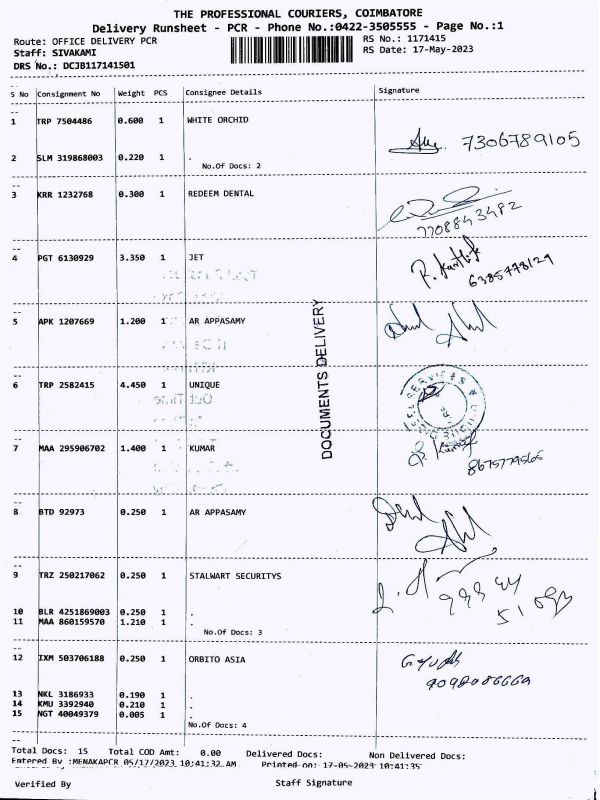 THE PROFESSIONAL COURIERS, COIMBATORE
Delivery Runsheet - PCR - Phone No.:0422-3505555 - Page No.:1
Route: OFFICE DELIVERY PCR RS No.: 1171415
Staff: SIVAKAMI RS Date: 17-May-2023
DRS No.: DCJB117141501
S No Consignment No Weight PCS Consignee Details Signature
1 TRP 7504486 0.600 1 WHITE ORCHID
7306789105
2 SLM 319868003 0.220 1 .
No.Of Docs: 2
3 KRR 1232768 0.300 1 REDEEM DENTAL
7708843482
4 PGT 6130929 3.350 1 JET
6385778129
5 APK 1207669 1.200 1 AR APPASAMY
DOCUMENTS DELIVERY
6 TRP 2582415 4.450 1 UNIQUE
7 MAA 295906702 1.400 1 KUMAR
8675779565
8 BTD 92973 0.250 1 AR APPASAMY
9 TRZ 250217062 0.250 1 STALWART SECURITYS
10 BLR 4251869003 0.250 1 .
11 MAA 860159570 1.210 1 .
No.Of Docs: 3
12 IXM 503706188 0.250 1 ORBITO ASIA
13 NKL 3186933 0.190 1 .
14 KMU 3392940 0.210 1 .
15 NGT 40049379 0.005 1 .
No.Of Docs: 4
Total Docs: 15 Total COD Amt: 0.00 Delivered Docs: Non Delivered Docs:
Entered By :MENAKAPCR 05/17/2023 10:41:32 AM Printed on: 17-05-2023 10:41:35
Verified By Staff Signature